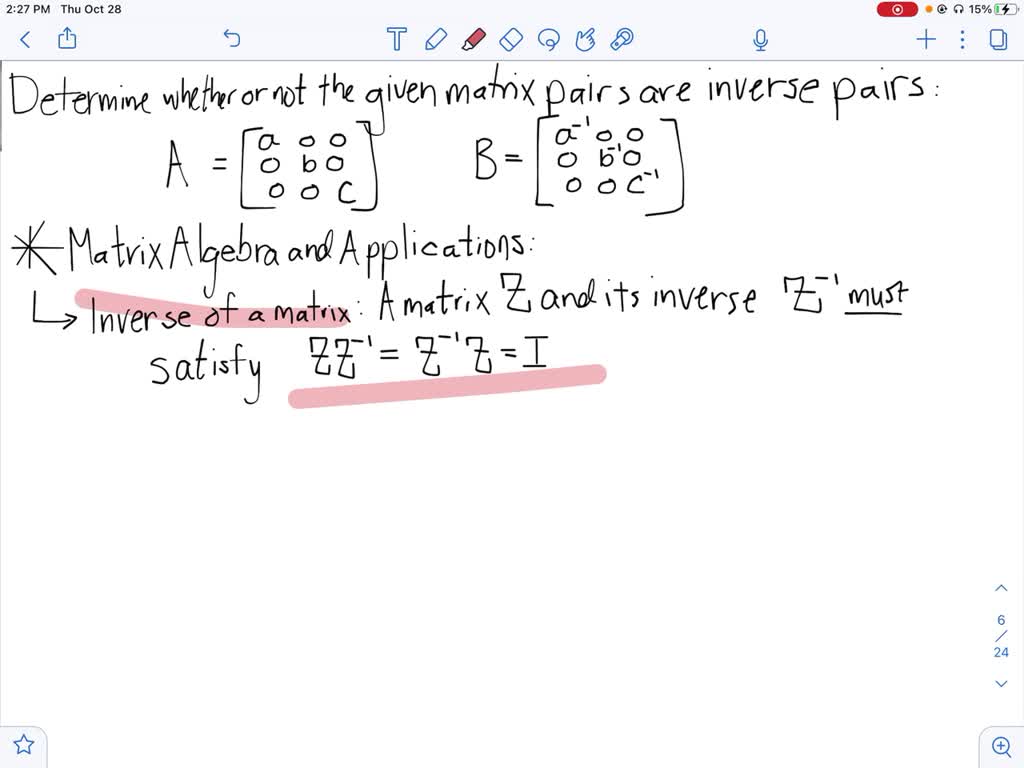 2:27 PM Thu Oct 28
15%
Determine whether or not the given matrix pairs are inverse pairs:
A = [a 0 0
0 b 0
0 0 c]
B = [a⁻¹ 0 0
0 b⁻¹ 0
0 0 c⁻¹]
* Matrix Algebra and Applications:
↳ Inverse of a matrix: A matrix Z and its inverse Z⁻¹ must
satisfy ZZ⁻¹ = Z⁻¹Z = I
6
/
24